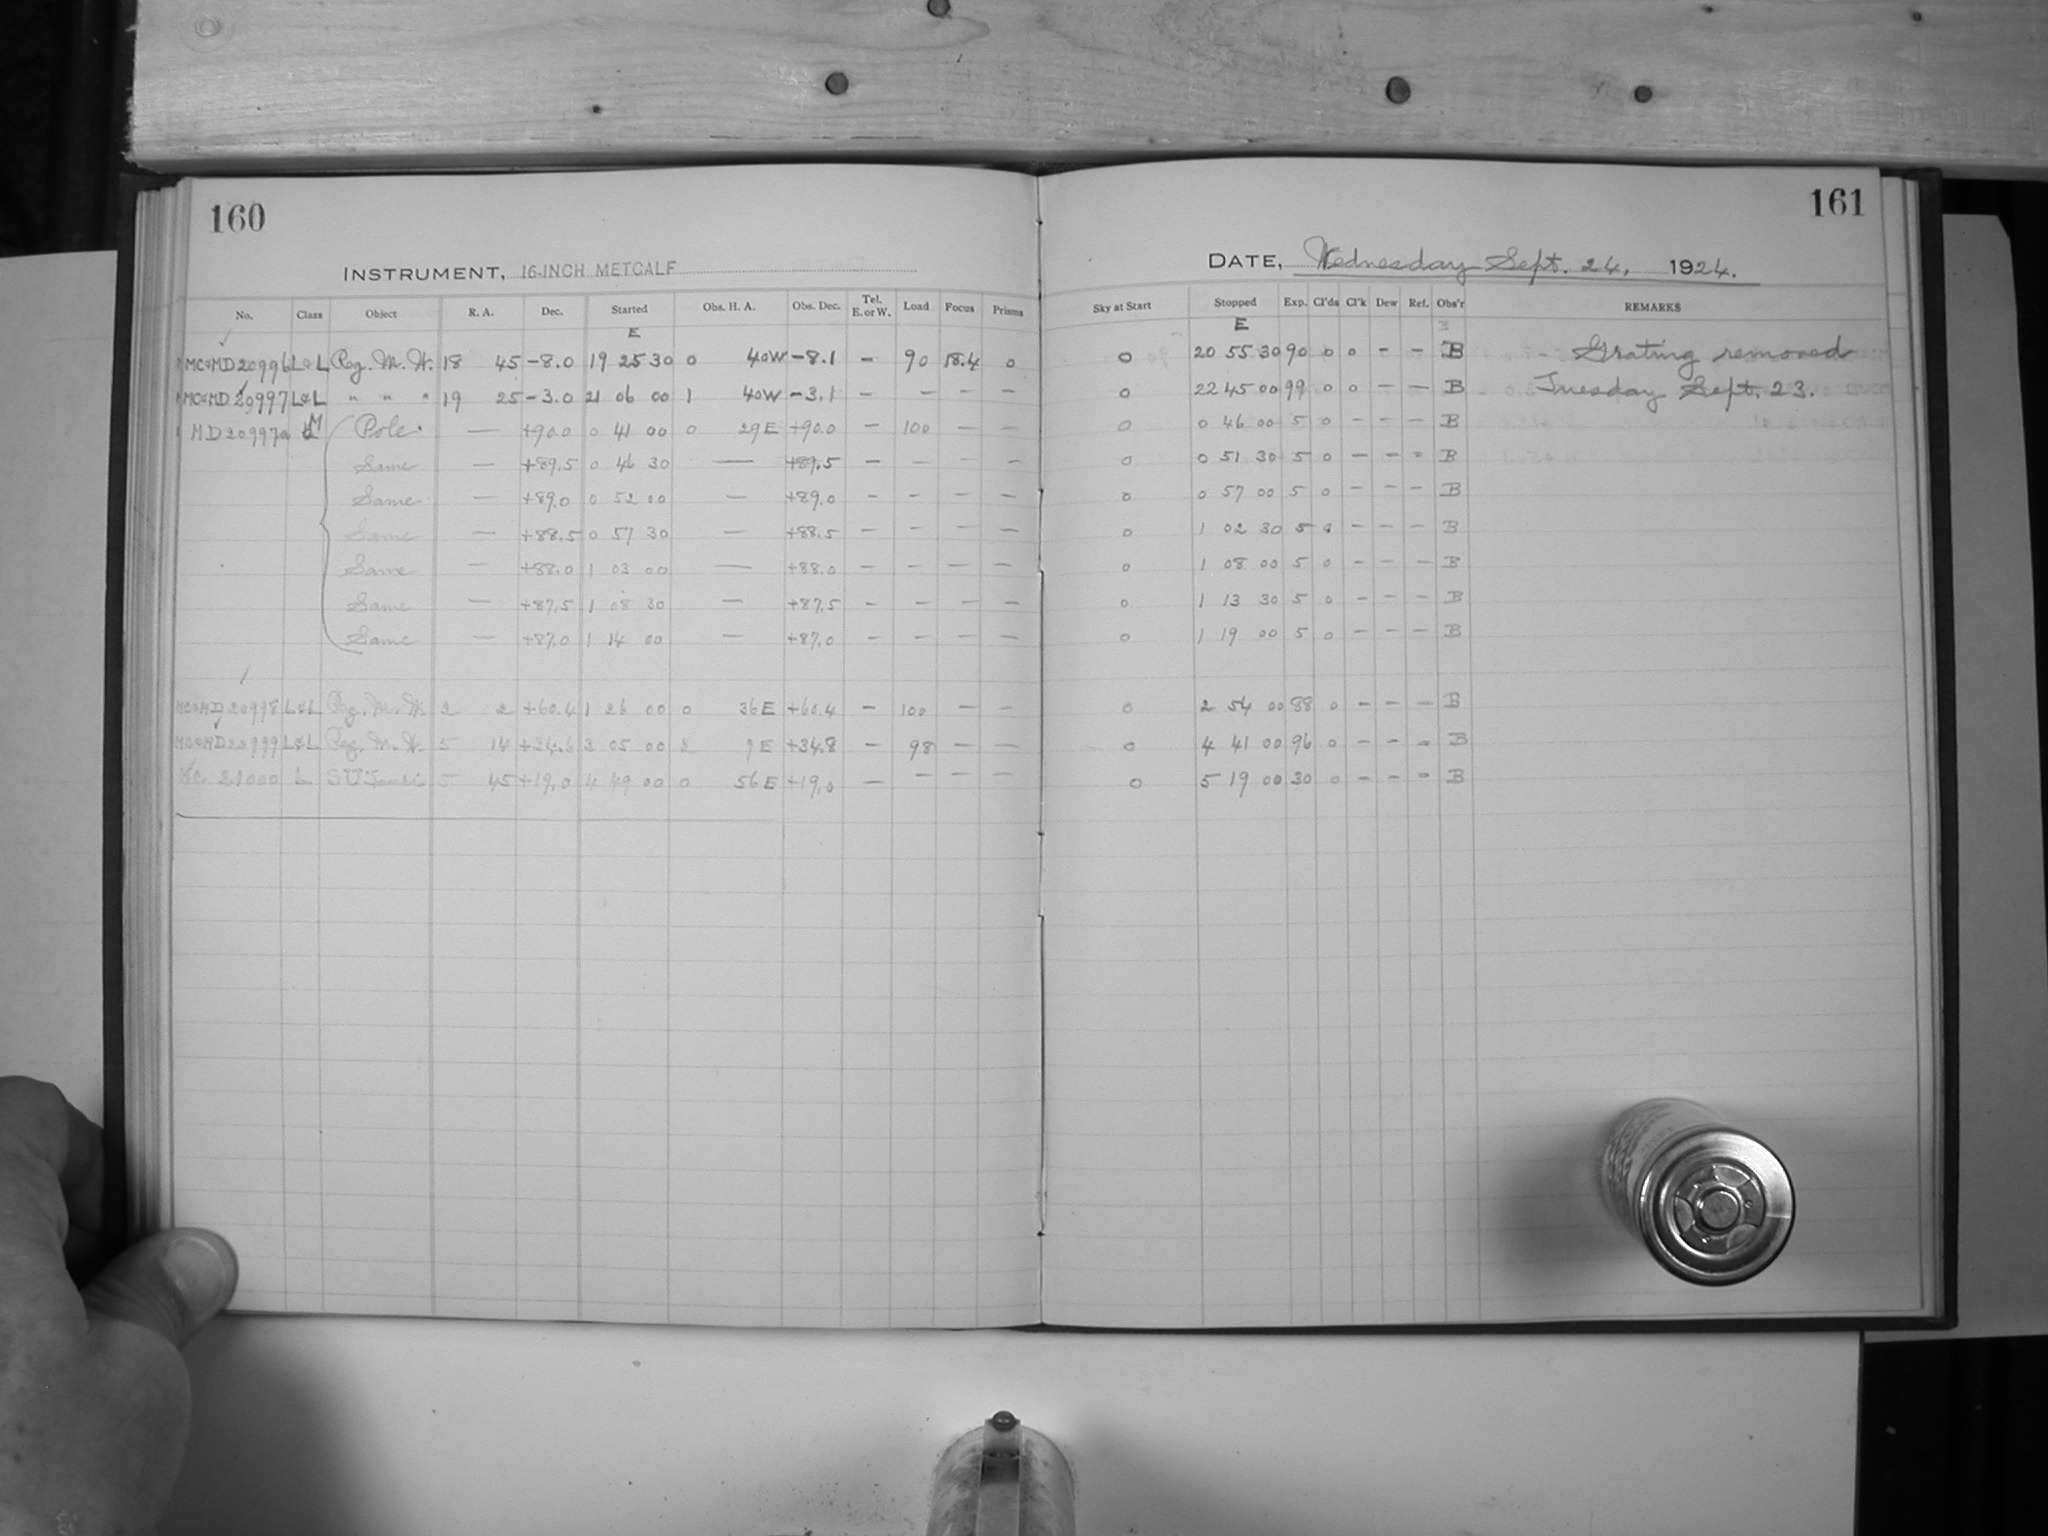 160
161
INSTRUMENT, 16-INCH METCALF
DATE, Wednesday Sept. 24, 1924.
No. Class Object R. A. Dec. Started Obs. H. A. Obs. Dec. Tel. E. or W. Load Focus Prisms Sky at Start Stopped Exp. Cl'ds Cl'k Dew Ref. Obs'r REMARKS
E E
MC&MD 20996 L&L Reg. M. W. 18 45 -8.0 19 25 30 0 40W -8.1 - 90 18.4 0 0 20 55 30 90 0 0 - - B Grating removed
MC&MD 20997 L&L " " " 19 25 -3.0 21 06 00 1 40W -3.1 - - - - 0 22 45 00 99 0 0 - - B Tuesday Sept. 23.
MD 20997a M Pole. - +90.0 0 41 00 0 29E +90.0 - 100 - - 0 0 46 00 5 0 - - - B
Same - +89.5 0 46 30 - +89.5 - - - - 0 0 51 30 5 0 - - = B
Same - +89.0 0 52 00 - +89.0 - - - - 0 0 57 00 5 0 - - - B
Same - +88.5 0 57 30 - +88.5 - - - - 0 1 02 30 5 0 - - - B
Same - +88.0 1 03 00 - +88.0 - - - - 0 1 08 00 5 0 - - - B
Same - +87.5 1 08 30 - +87.5 - - - - 0 1 13 30 5 0 - - - B
Same - +87.0 1 14 00 - +87.0 - - - - 0 1 19 00 5 0 - - - B
MC&MD 20998 L&L Reg. M. W. 2 2 +60.4 1 26 00 0 36E +60.4 - 100 - - 0 2 54 00 88 0 - - - B
MC&MD 20999 L&L Reg. M. W. 5 14 +34.6 3 05 00 2 9E +34.8 - 98 - - 0 4 41 00 96 0 - - - B
MC 21000 L SU Tauri 5 45 +19.0 4 49 00 0 56E +19.0 - - - - 0 5 19 00 30 0 - - = B